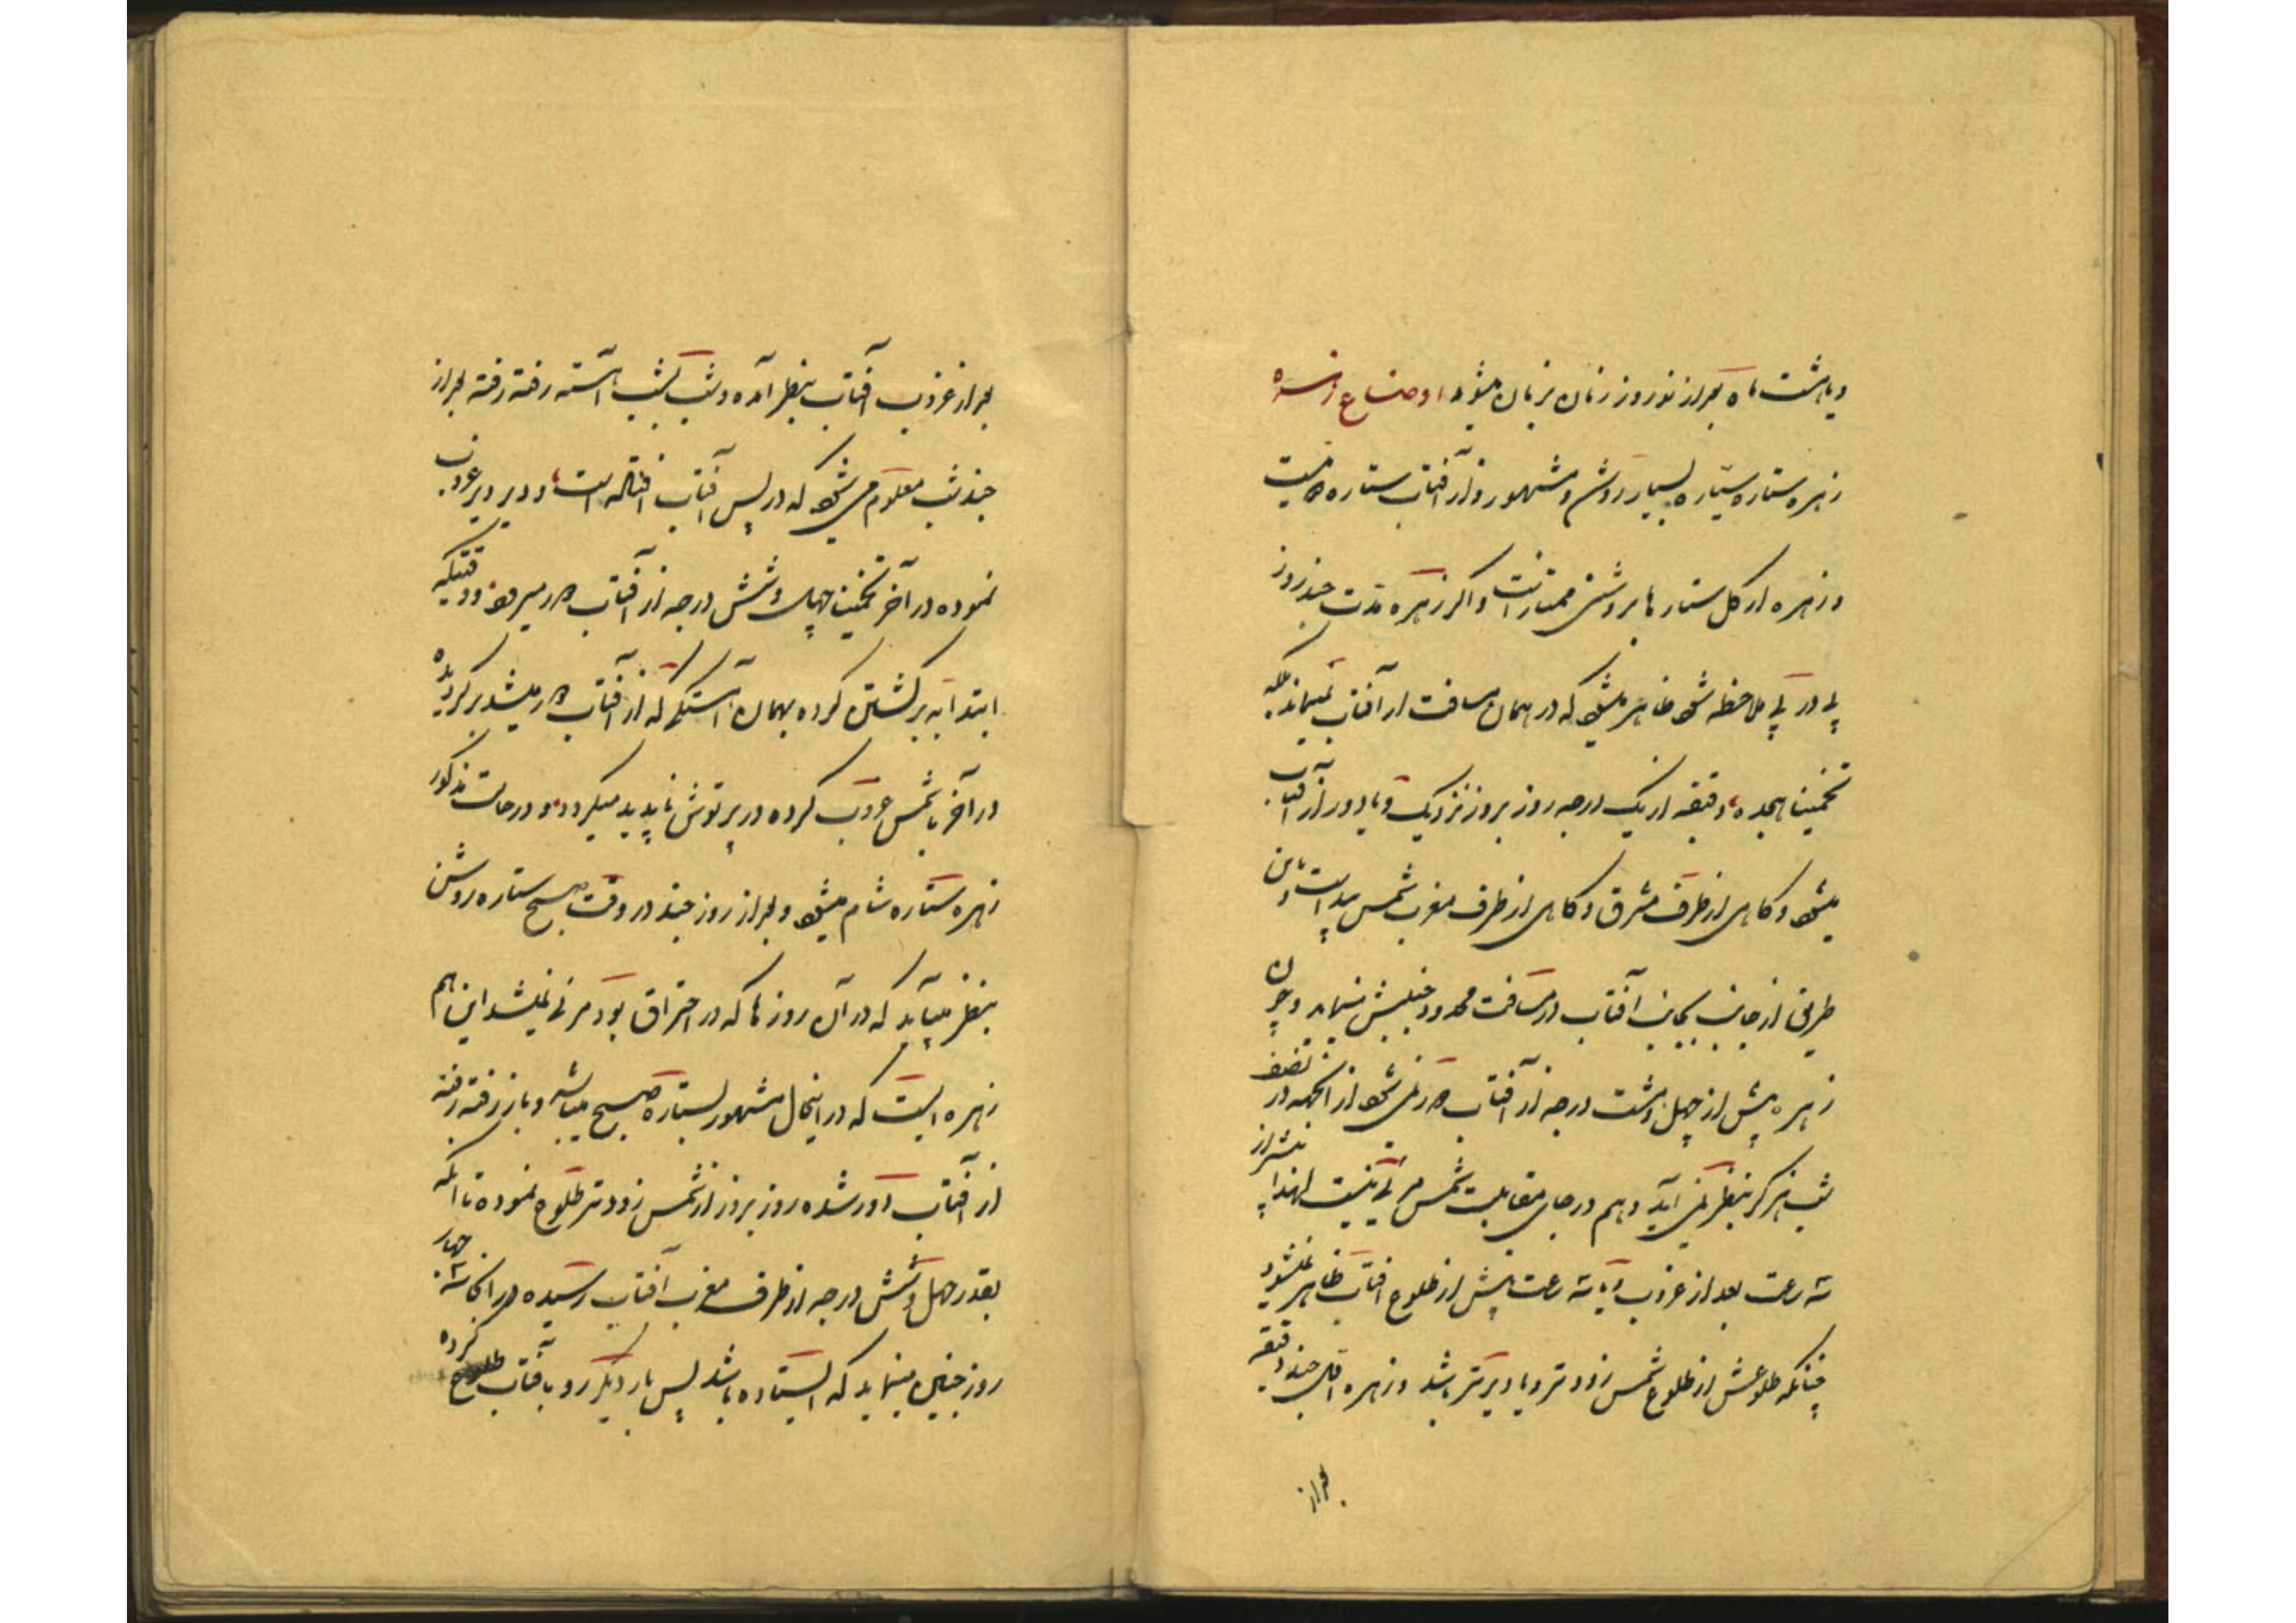 و یا هشت ماه بعد از نوروز زنان بزبان میشود اوضاع زهره
زهره ستاره سیاره بسیار روشن و مشهور و از آفتاب ستاره نیست
و زهره از کل ستار ها بروشنی ممتاز است و اگر زهره مدت چند روز
پی در پی ملاحظه شود ظاهر میشود که در همان مسافت از آفتاب نمیماند بلکه
تخمینا هیجده دقیقه از یک درجه روز بروز نزدیک و یا دور از آفتاب
میشود و گاهی از طرف مشرق و گاهی از طرف مغرب شمس پیداست و باین
طریق از جانب بجانب آفتاب در مسافت محدود جنبش مینماید و چون
زهره پیش از چهل و هشت درجه از آفتاب دور نمی شود از آنجهه در نصف
شب هرگز بنظر نمی آید و هم در جای مقابلیت شمس مرئی نیست لهذا پیشتر از
سه ساعت بعد از غروب و یا سه ساعت پیش از طلوع افتاب ظاهر نمیشود
چنانکه طلوعش از طلوع شمس زودتر و یا دیرتر باشد و زهره اقل چند دقیقه
بعد از
بعد از غروب آفتاب بنظر آمده و شب بشب آهسته رفته رفته بعد از
چند شب معلوم می شود که در پس آفتاب افتاده است و دیر دیر غروب
نموده در آخر تخمینا چهل و شش درجه از آفتاب دور میرود و وقتیکه
ابتدا به برگشتن کرده بهمان آهستگی که از آفتاب دور میشد برگردیده
در آخر با شمس غروب کرده در پرتوش ناپدید میگردد و در حالت مذکور
زهره ستاره شام میشود و بعد از روز چند در وقت صبح ستاره روشن
بنظر میآید که در آن روز ها که در احتراق بود مرئی نمیشد این هم
زهره ایست که در اینحال مشهور بستاره صبح میباشد و باز رفته رفته
از آفتاب دور شده روز بروز از شمس زودتر طلوع نموده تا آنکه
بقدر چهل و شش درجه از طرف مغرب آفتاب رسیده در آنجا سه چهار
روز چنین مینماید که ایستاده باشد پس بار دیگر رو بآفتاب کرده